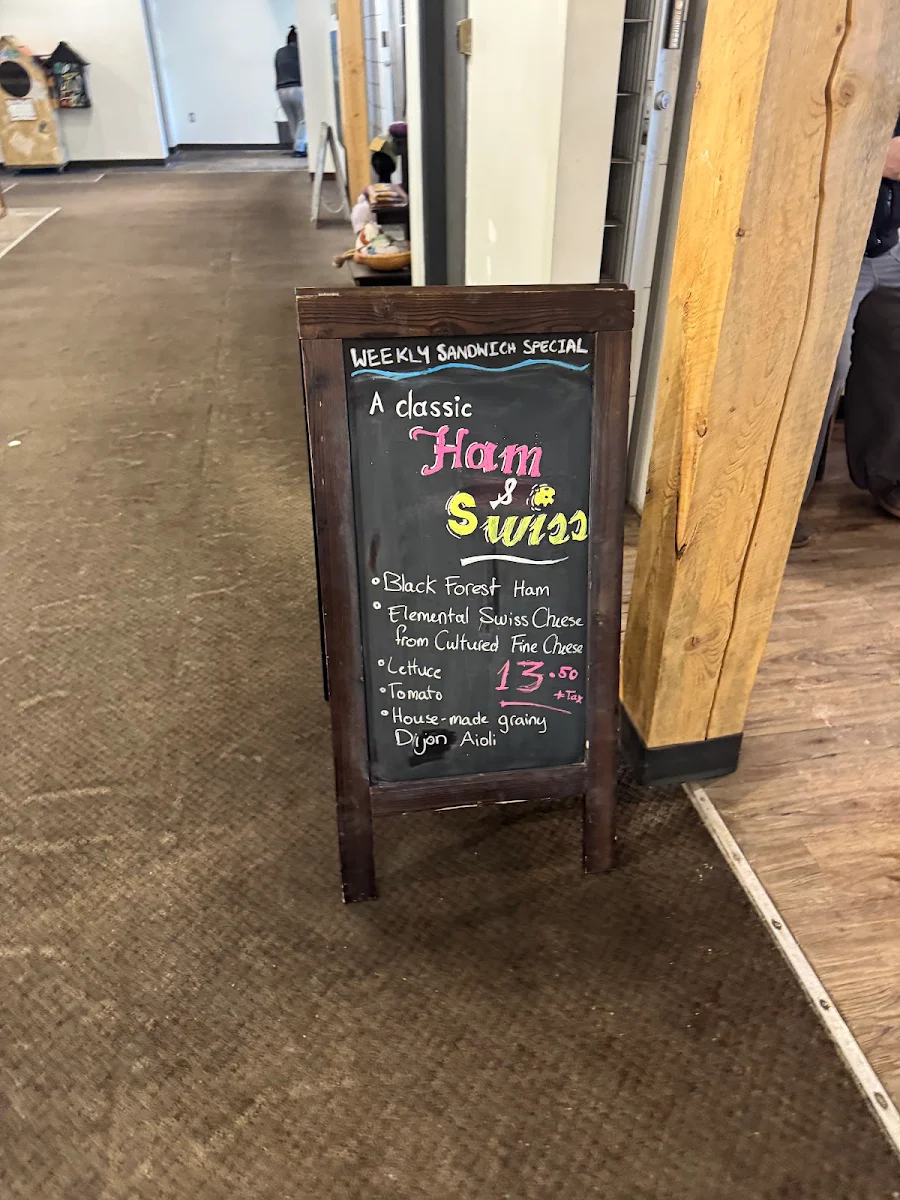 WEEKLY SANDWICH SPECIAL
A classic
Ham
&
Swiss
• Black Forest Ham
• Elemental Swiss Cheese
from Cultured Fine Cheese
• Lettuce
• Tomato
13.50
+Tax
• House-made grainy
Dijon Aioli